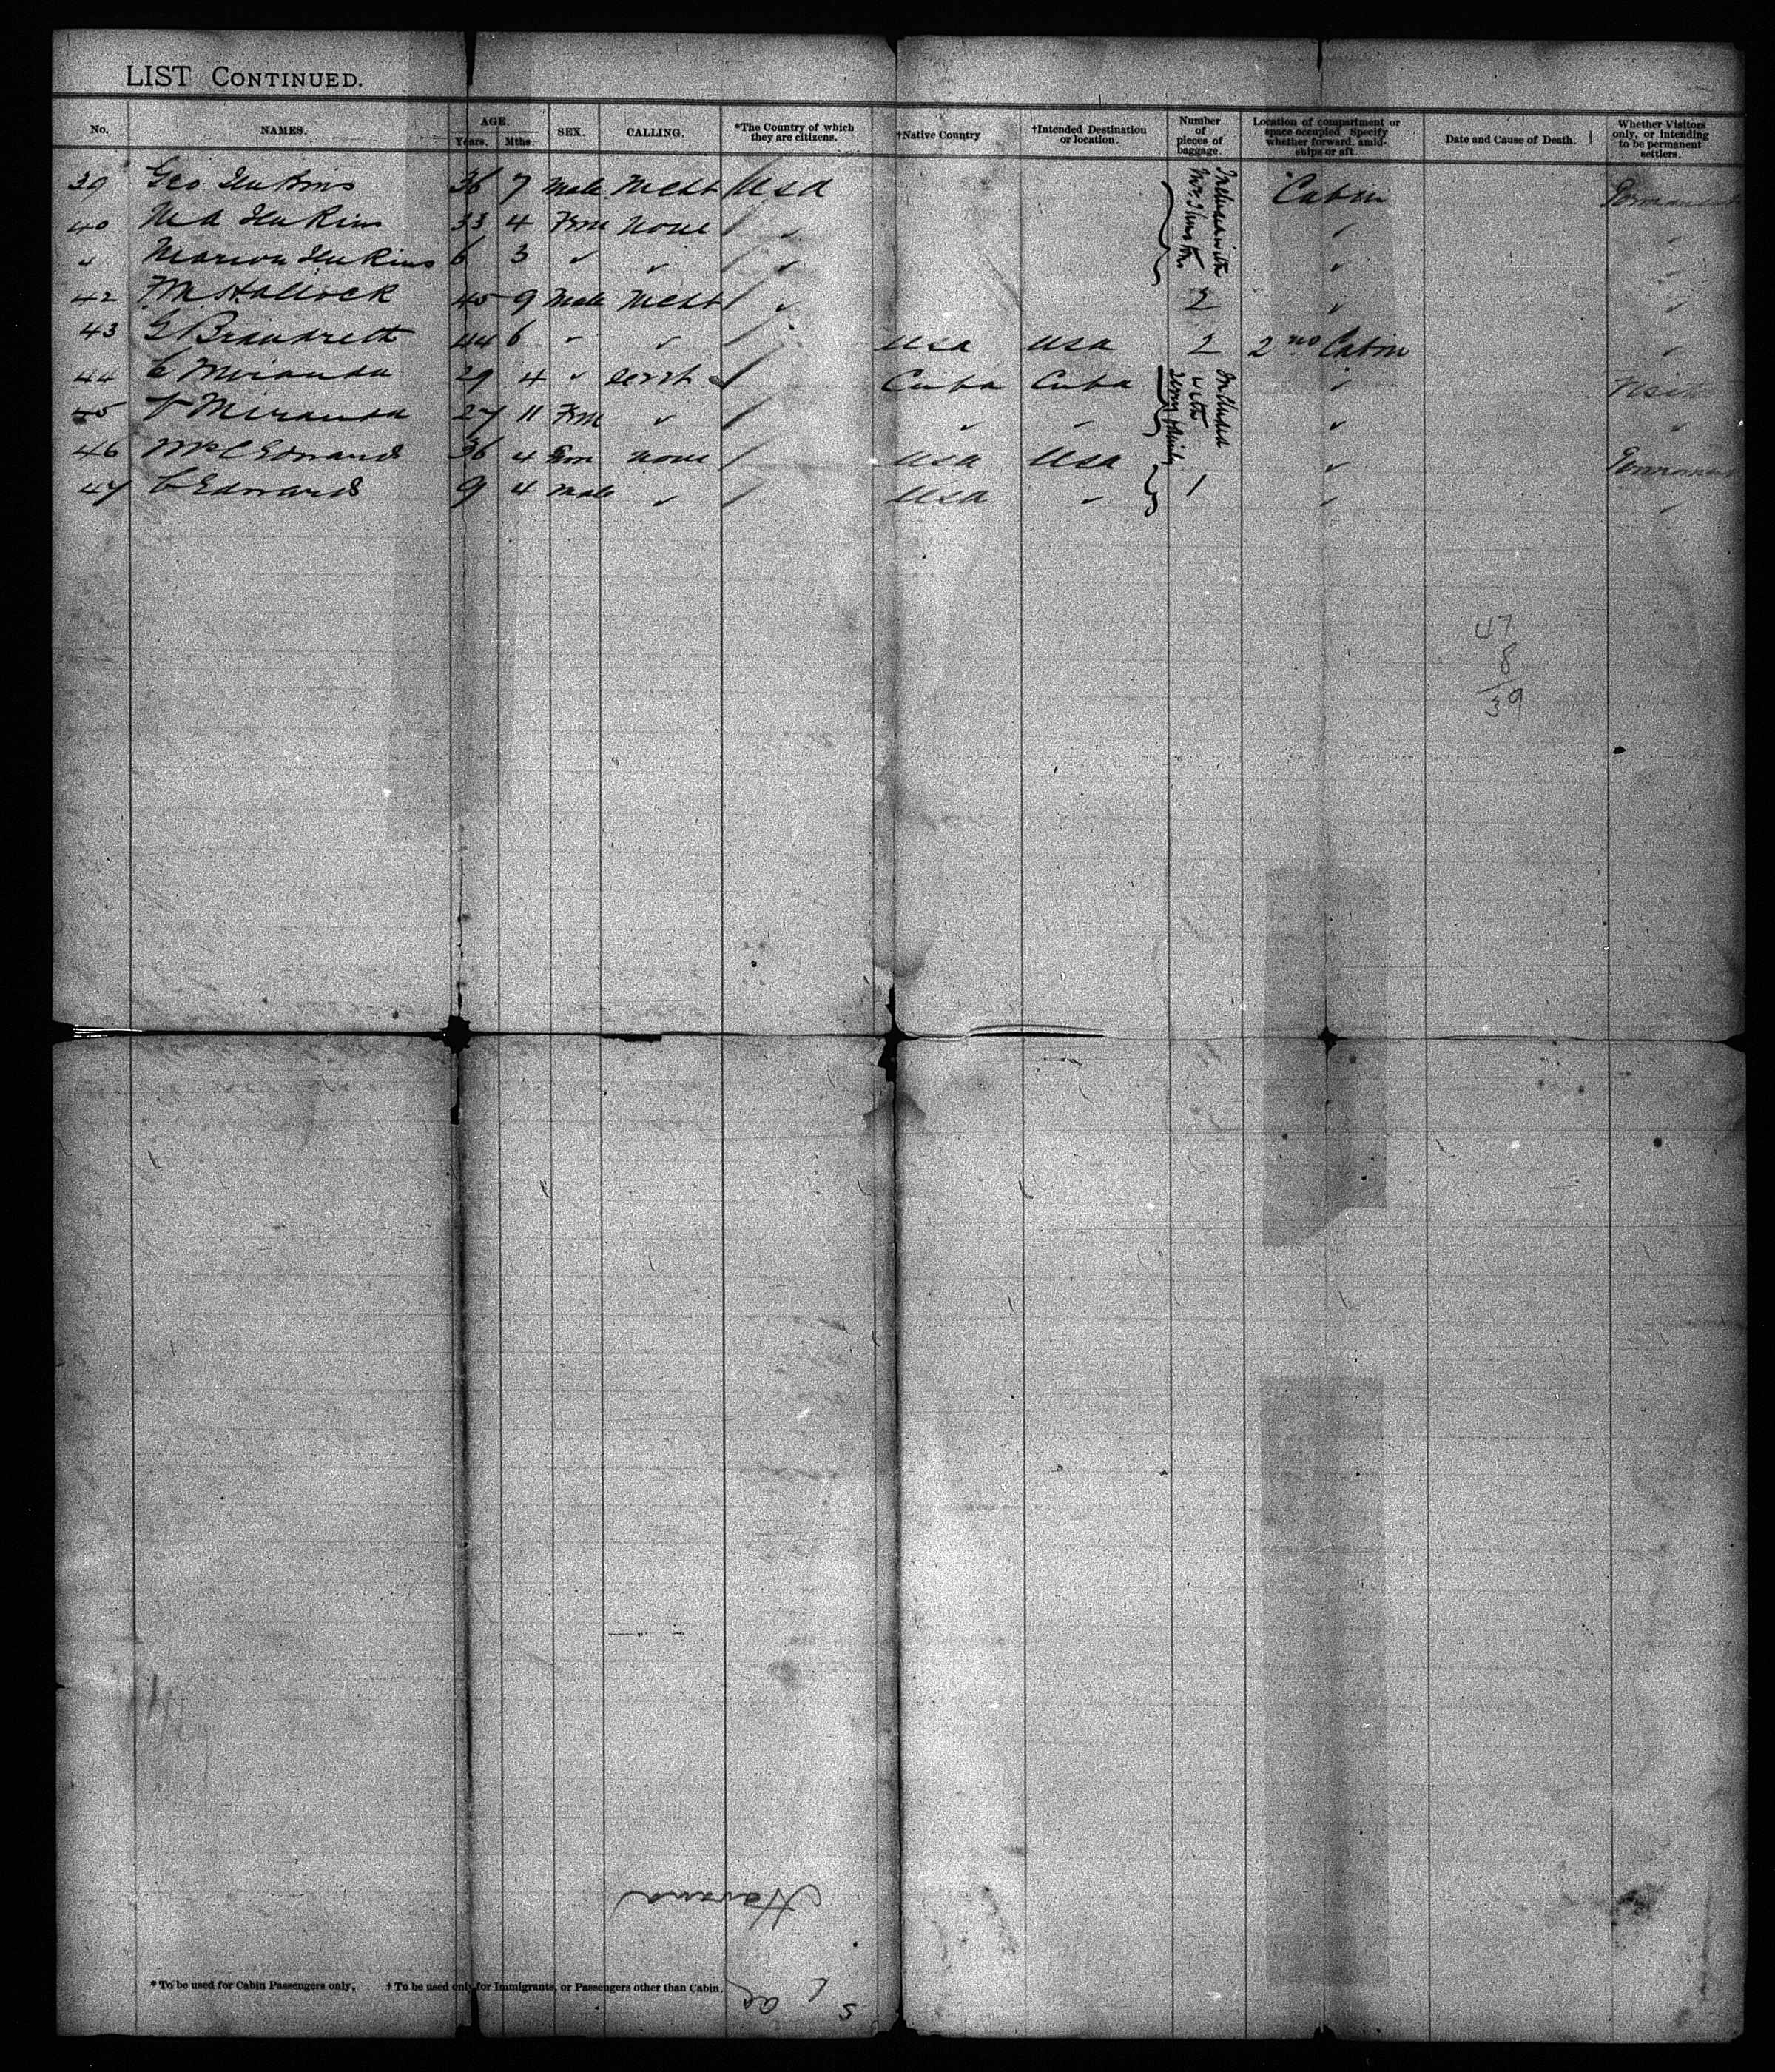 LIST CONTINUED.
No. NAMES. AGE. Years. Mths. SEX. CALLING. *The Country of which they are citizens. †Native Country †Intended Destination or location. Number of pieces of baggage. Location of compartment or space occupied. Specify whether forward, amidships or aft. Date and Cause of Death. Whether Visitors only, or intending to be permanent settlers.
39 Geo Jenkins 36 7 Male Mcht USA Cabin Permanent
40 M A Jenkins 33 4 Fem None
Marion Jenkins 6 3
42 F M Hallock 45 9 Male Mcht 2
43 G Brandreth 44 6 USA USA 2 2nd Cabin
44 C Miranda 29 4 Cuba Cuba Included with
45 Miranda 27 11 Fem
46 Mrs C Edwards 36 4 Fem None USA USA Permanent
47 C Edwards 9 4 Male USA 1
47
8
39
Havana
* To be used for Cabin Passengers only. † To be used only for Immigrants, or Passengers other than Cabin.